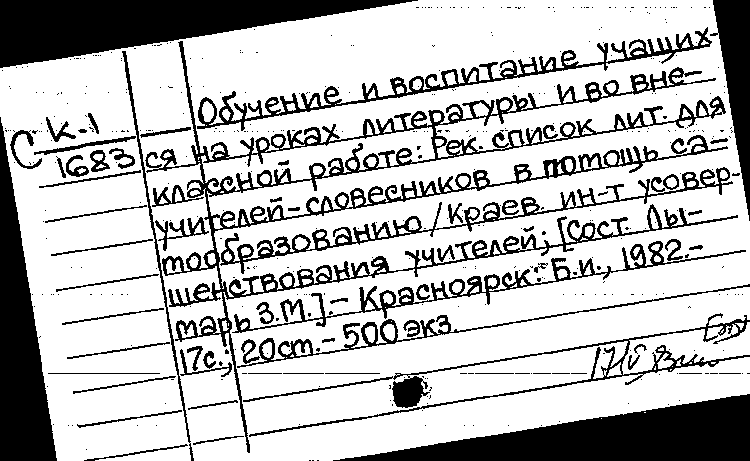 С К-1
1683
Обучение и воспитание учащих-
ся на уроках литературы и во вне-
классной работе: Рек. список лит. для
учителей-словесников в помощь са-
мообразованию / Краев. ин-т усовер-
шенствования учителей; [Сост. Лы-
марь З.М.].- Красноярск: Б.и., 1982.-
17с.; 20см.- 500 экз.